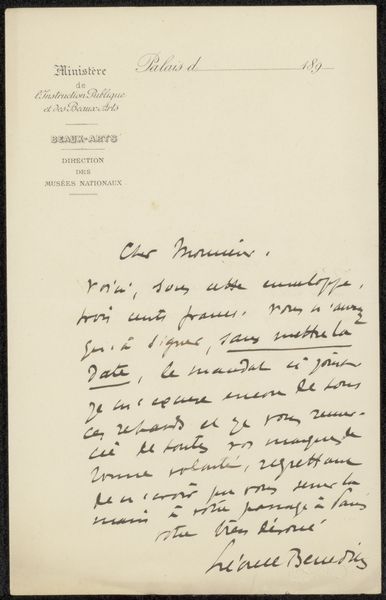 Ministère
de
l'Instruction Publique
et des Beaux-Arts
BEAUX-ARTS
DIRECTION
DES
MUSÉES NATIONAUX
Palais d 189
Cher Monsieur,
Voici, sous cette enveloppe,
trois cents francs. Vous n'aurez
qu'à signer, sans mettre la
date, le mandat ci joint
je m'excuse encore de tous
ces retards et je vous remer-
cie de toutes vos marques de
bonne volonté, regrettant
de n'avoir pu vous serrer la
main à votre passage à Paris
votre bien dévoué
Léonce Benedite